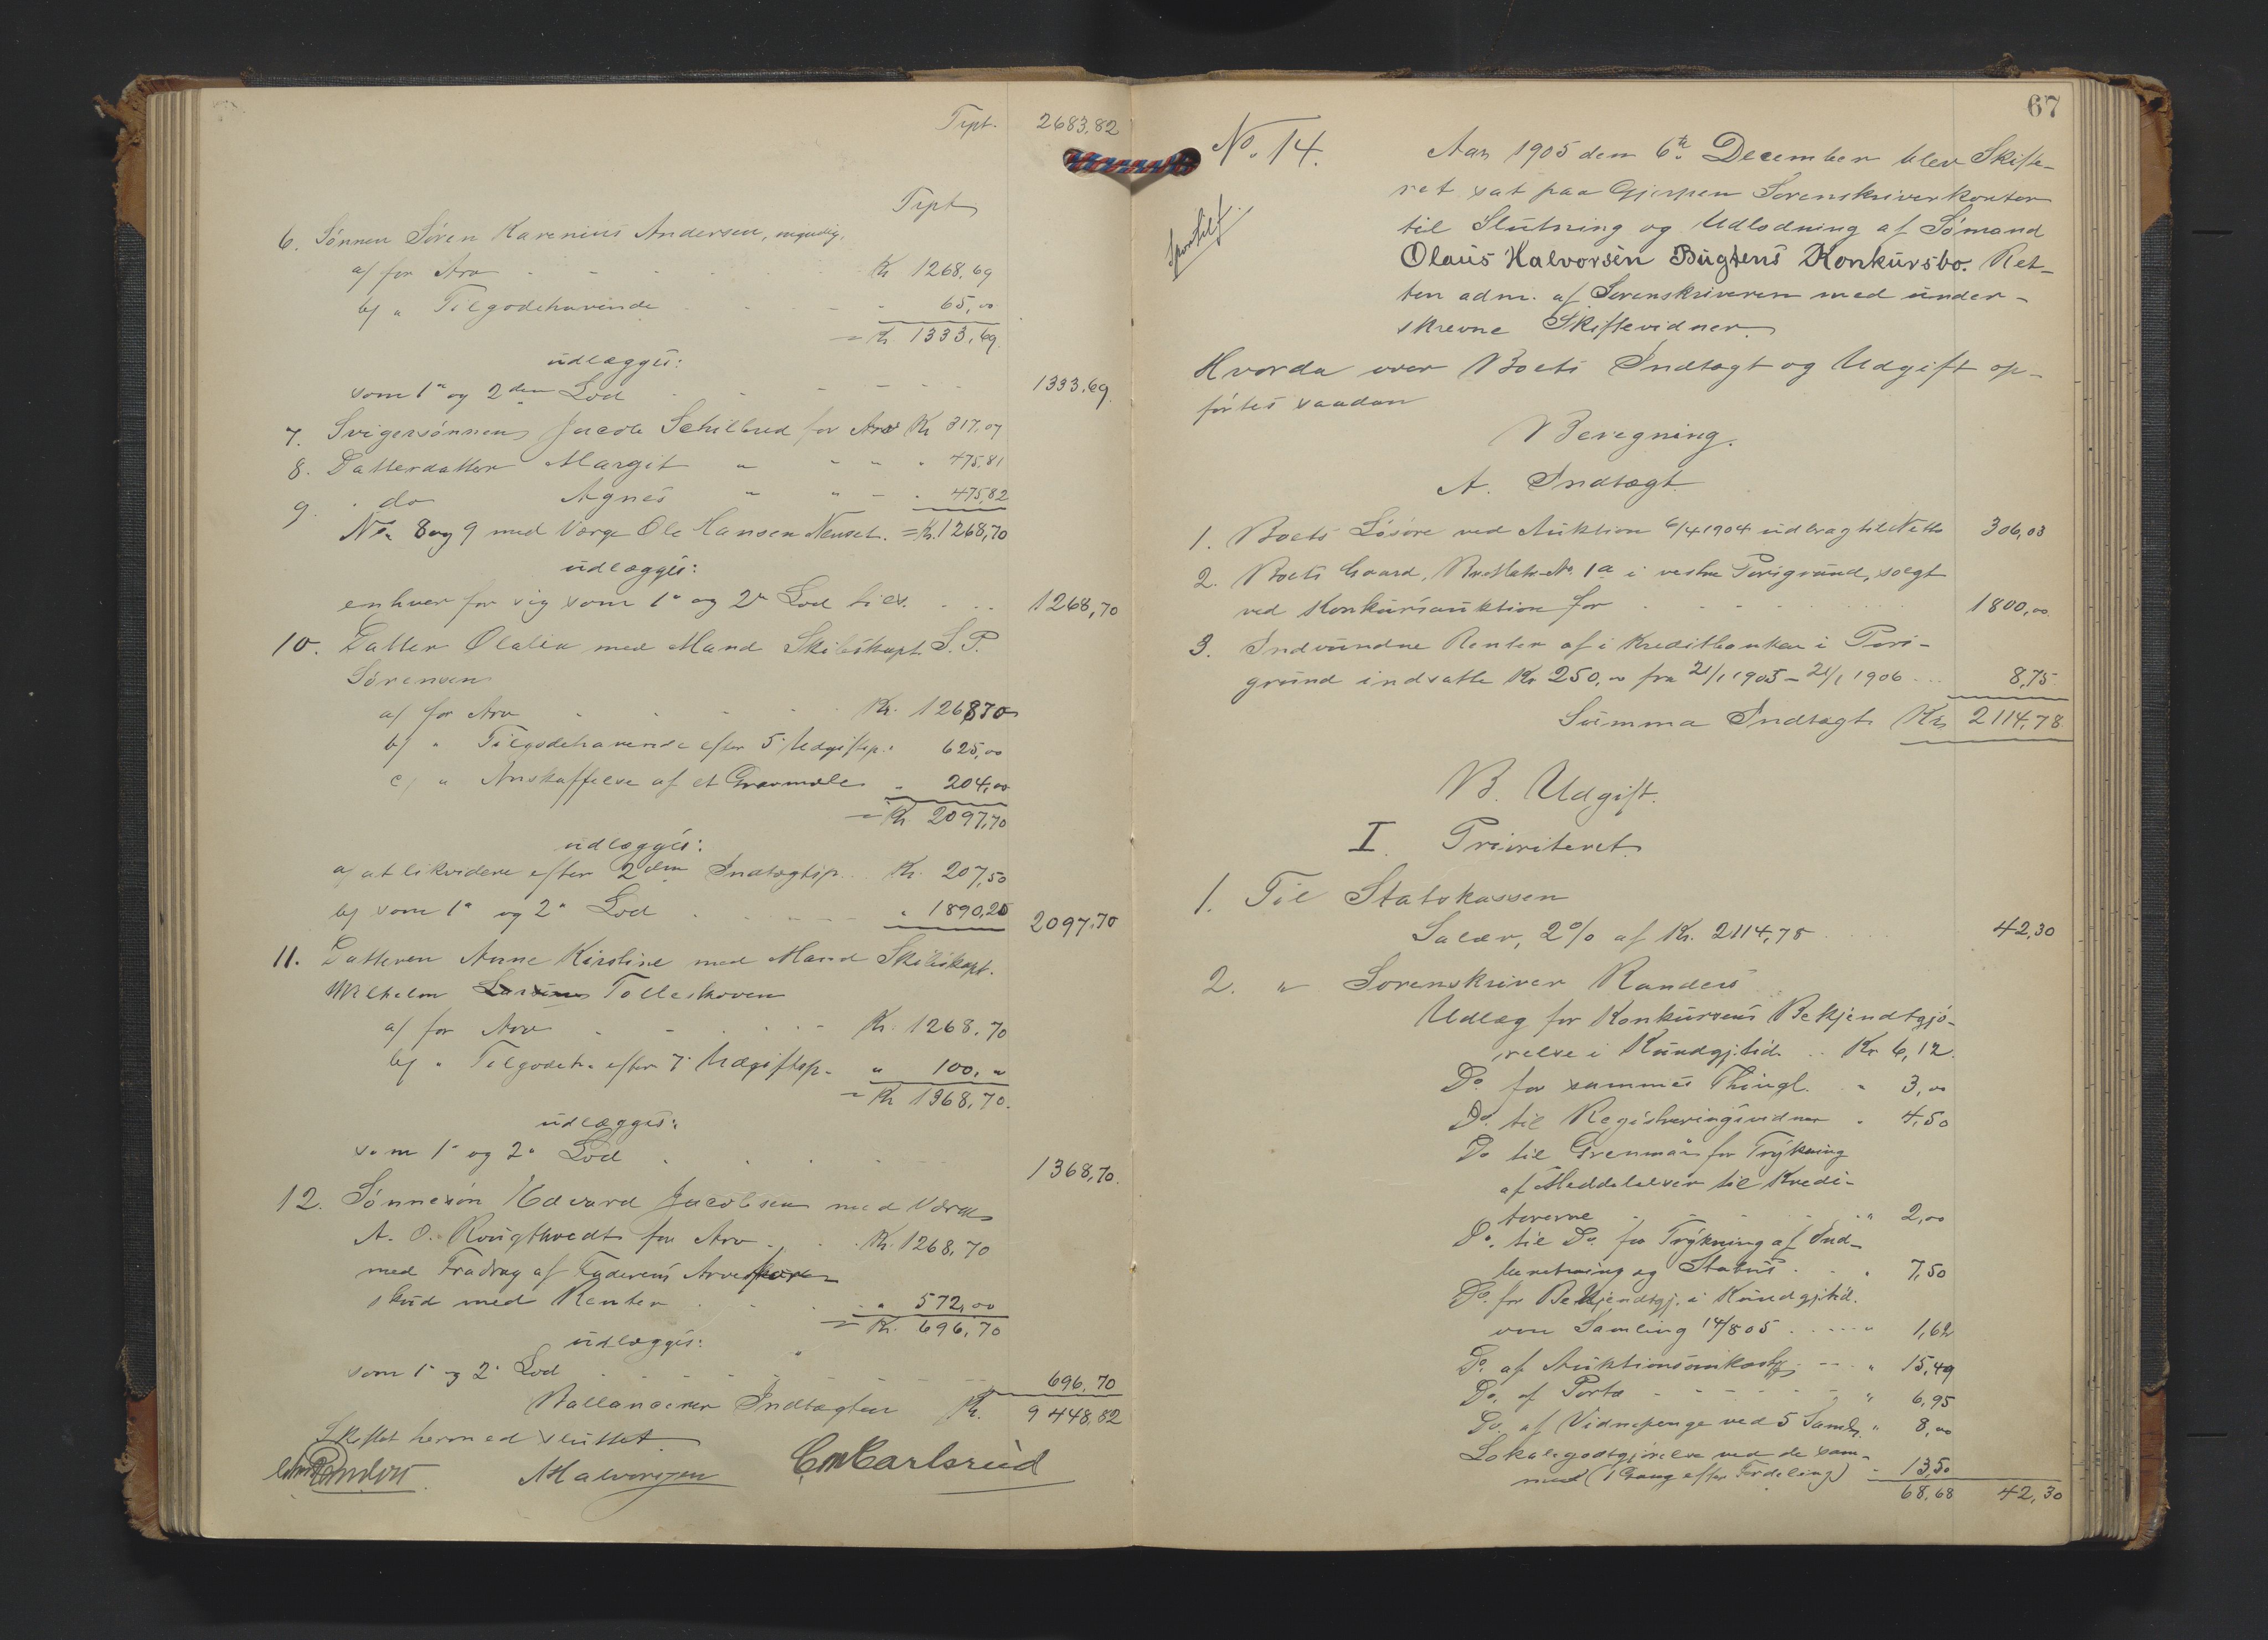 Trpt. 2683,82
Trpt
6. Sønnen Søren Karenius Andersen, myndig,
a/ for Arv Kr 1268,69
b/ " Tilgodehavende " 65,00
= Kr. 1333,69.
udlægges:
som 1ste og 2den Lod 1333,69.
7. Svigersønnen Jacob Schilbred for Arv Kr 317,07
8. Datterdatter Margit " " " " 475,81
9. do Agnes " " " " 475,82
No. 8 og 9 med Værge Ole Hansen = Kr. 1268,70
udlægges:
enhver for sig som 1" og 2" Lod tils. 1268,70
10. Datter Olalia med Mand Skibskapt. S. P.
Sørensen
a/ for Arv Kr. 1268,70
b/ " Tilgodehavende efter 5" Udgiftsp. " 625,00
c/ " Anskaffelse af et Gravmæle " 204,00
= Kr. 2097,70
udlægges:
a/ at likvidere efter 2den Indtægtsp. Kr. 207,50
b/ som 1" og 2" Lod " 1890,20 2097,70
11. Datteren Anne Kirstine med Mand Skibskapt.
Wilhelm Tolleskoven
a/ for Arv Kr. 1268,70
b/ " Tilgodeh. efter 7" Udgiftsp. " 100, "
= Kr 1368,70.
udlægges:
som 1" og 2" Lod 1368,70.
12. Sønnesøn Edvard Jacobsen med Værge
A. O. Rougthvedt for Arv Kr. 1268,70
med Fradrag af Faderens Arvefor
skud med Renter " 572,00
= Kr. 696,70
udlægges:
som 1" og 2" Lod 696,70
Ballancerer Indtægten Kr. 9448,82
Skiftet hermed sluttet.
Randers AHalvorsen CMCarlsrud
67
No. 14.
Aar 1905 den 6te December blev Skifte-
ret sat paa Gjerpen Sorenskriverkontor
til Slutning og Udlodning af Sømand
Olaus Halvorsen Bugtens Konkursbo. Ret-
ten adm. af Sorenskriveren med under-
skrevne Skiftevidner.
Hvorda over Boets Indtægt og Udgift op-
førtes saadan
Beregning.
A. Indtægt
1. Boets Løsøre ved Auktion 6/4 1904 udbragt til Netto 306,03
2. Boets Gaard, Br. Matr. No. 1a i vestre Porsgrund, solgt
ved Konkursauktion for 1800,00
3. Indvundne Renter af i Kreditbanken i Pors-
grund indsatte Kr 250,00 fra 21/1 1905 - 21/1 1906 8,75
Summa Indtægt Kr. 2114,78
B. Udgift.
I. Prioriteret
1. Til Statskassen
Salær, 2% af Kr. 2114,78 42,30
2. " Sorenskriver Randers
Udlæg for Konkursens Bekjendtgjø-
relse i Kundgj.tid. Kr 6,12.
Do. for sammes Thingl. " 3,00
Do. til Registreringsvidner " 4,50
Do til Grenmar for Trykning
af Meddelelser til Kredi-
torerne " 2,00
Do. til Do. for Trykning af Ind-
beretning og Status " 7,50
Do. for Bekjendtgj. i Kundgj.tid.
om Samling 14/8 05 " 1,62
Do. af Auktionsomkostg. " 15,49
Do. af Porto " 6,95
Do. af Vidnepenge ved 5 Saml. " 8,00
Lokalegodtgjørelse ved de sam-
me (1 Gang efter Fordeling) " 13,50
68,68 42,30